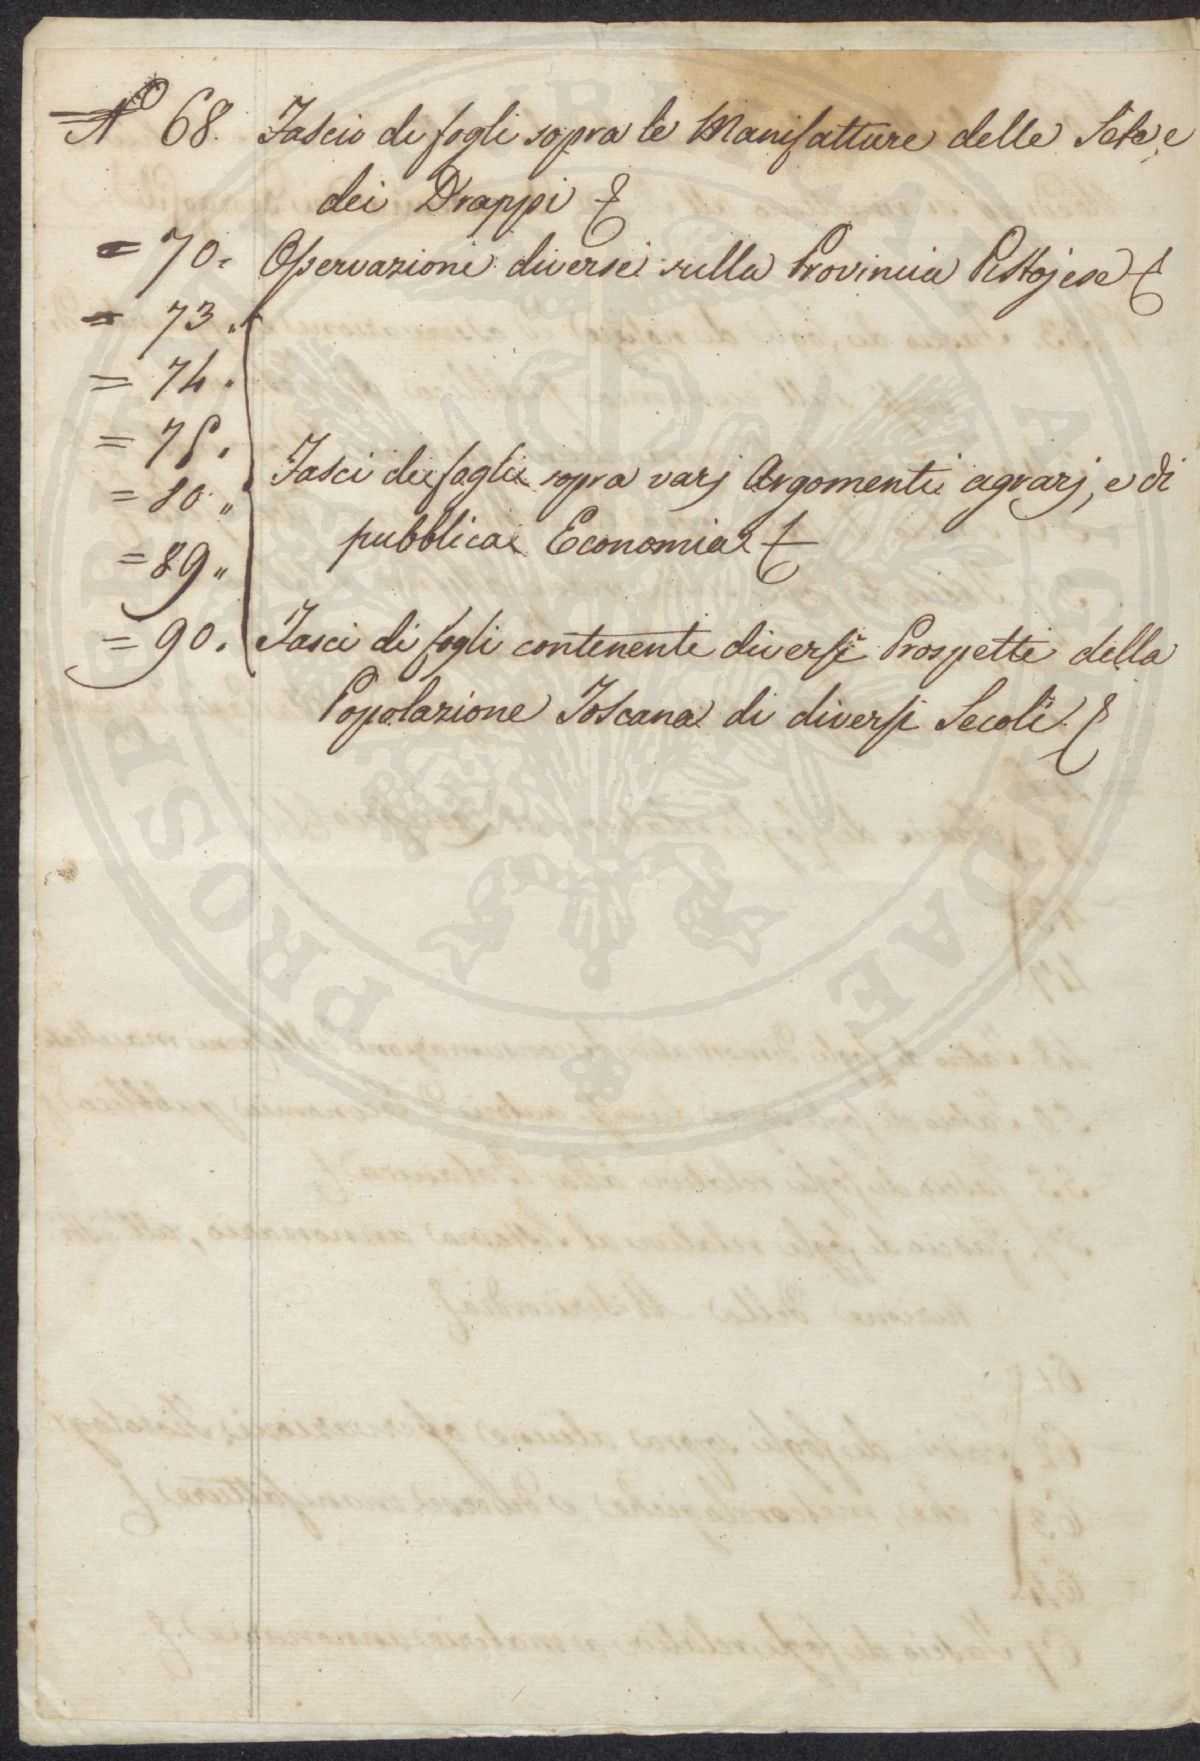 N° 68. Fascio di fogli sopra le Manifatture delle Sete, e
dei Drappi
= 70. Osservazioni diverse sulla Provincia Pistojese
= 73.
= 74.
= 75.
= 80. Fasci di fogli sopra varj Argomenti agrarj, e di
pubblica Economia
= 89.
= 90. Fasci di fogli contenente diversi Prospetti della
Popolazione Toscana di diversi Secoli